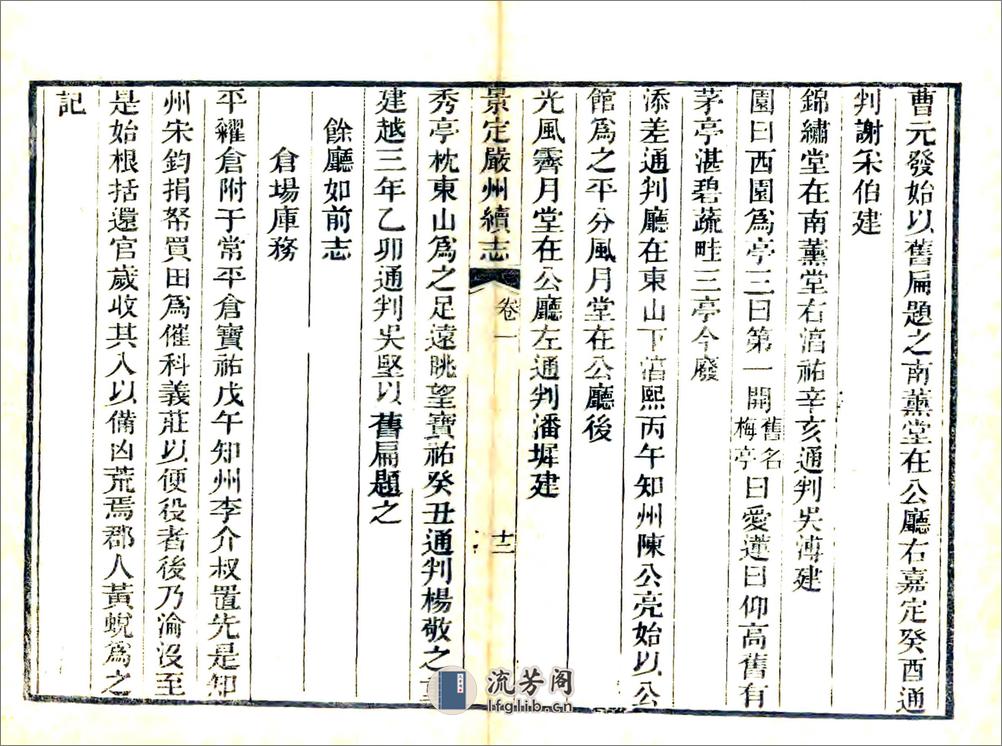 曹元發始以舊扁題之南薰堂在公廳右嘉定癸酉通
判謝宋伯建
錦繡堂在南薰堂右淳祐辛亥通判吳溥建
園曰西園爲亭三曰第一開舊名梅亭曰愛蓮曰仰高舊有
茅亭湛碧蔬畦三亭今廢
添差通判廳在東山下淳熙丙午知州陳公亮始以公
館爲之平分風月堂在公廳後
光風霽月堂在公廳左通判潘墀建
景定嚴州續志 卷一 十三
秀亭枕東山爲之足遠眺望寶祐癸丑通判楊敬之
建越三年乙卯通判吳堅以舊扁題之
餘廳如前志
倉場庫務
平糴倉附于常平倉寶祐戊午知州李介叔置先是知
州宋鈞捐帑買田爲催科義莊以便役者後乃淪沒至
是始根括還官歲收其入以備凶荒焉郡人黃蛻爲之
記
流芳阁
lfglib.cn